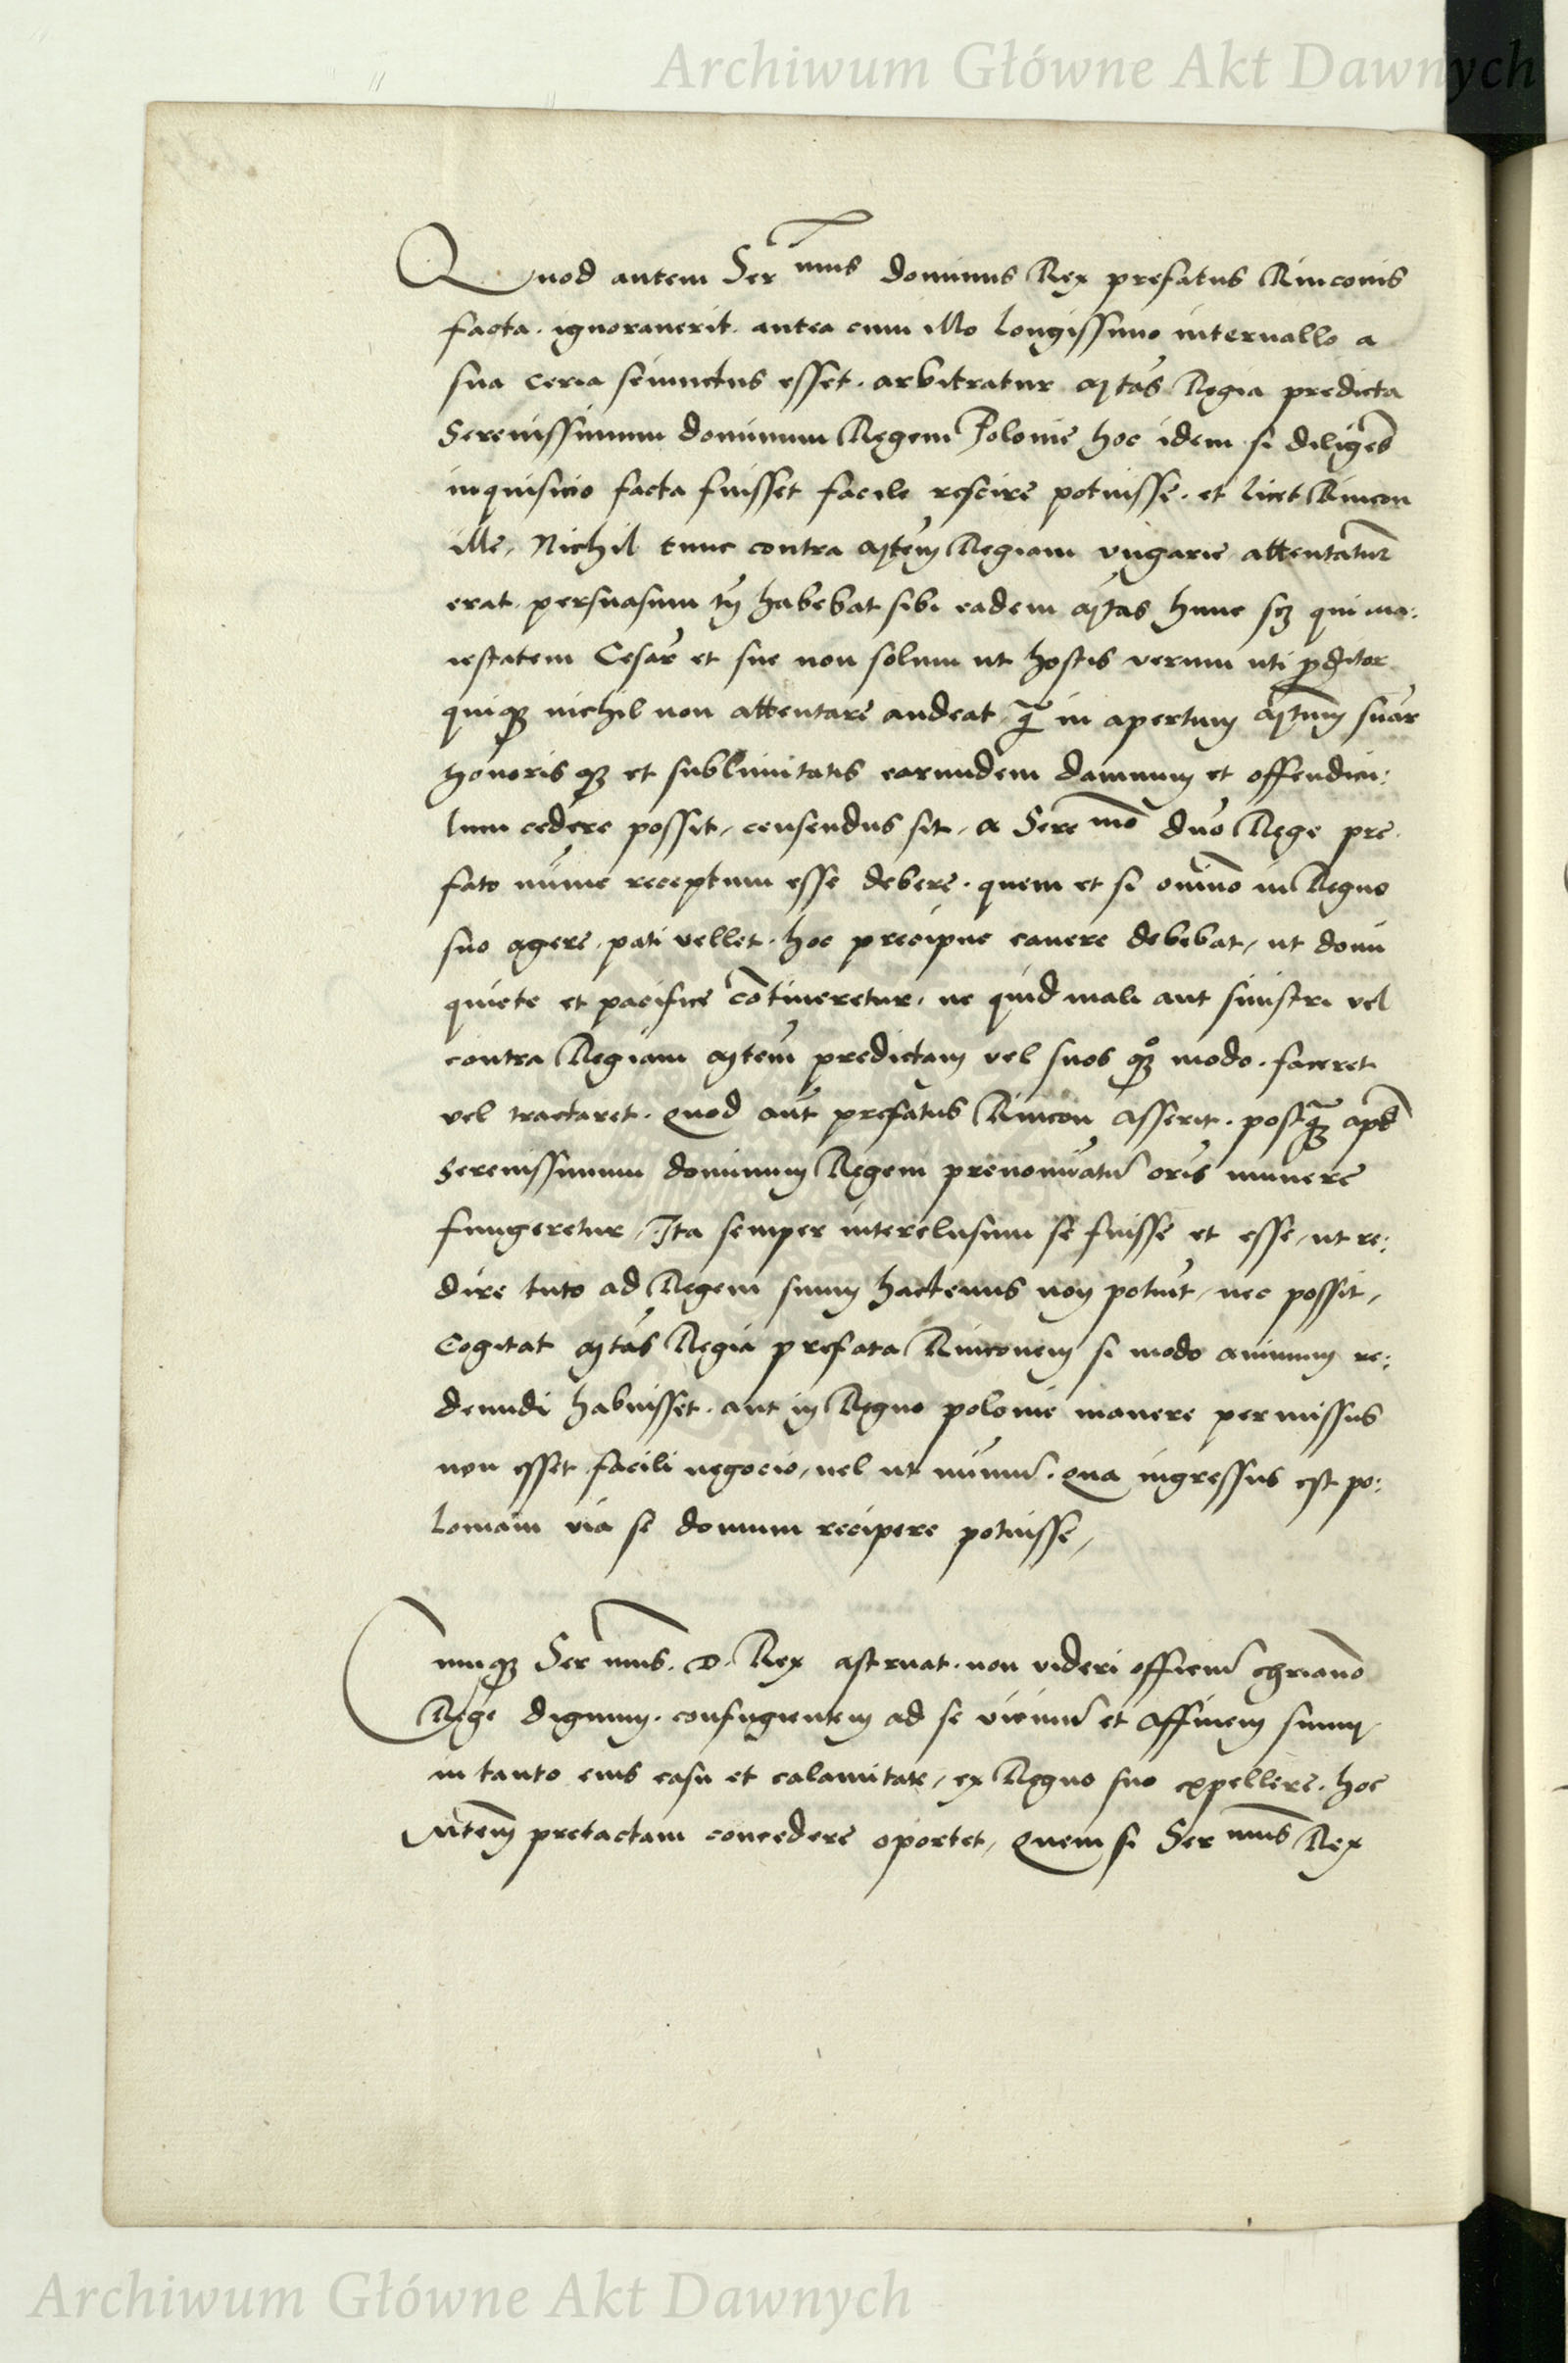 Archiwum Główne Akt Dawnych
Quod autem Ser mus dominus Rex prefatus Rinconis
facta. ignorauerit. antea cum illo longissimo interuallo a
sua ceria seiunctus esset. arbitratur Mtas Regia predicta
Serenissimum dominum Regem Polonie hoc idem si diligens
inquisicio facta fuisset facile rescire potuisse. et licet Rincon
ille, Nichil tunc contra Mtem Regiam vngarie attentatur
erat. persuasum tn habebat sibi eadem Mtas hunc scz qui ma:
iestatem Cesar et sue non solum ut hostis verum uti proditor
quiqz nichil non attentare audeat, q in apertum Mtum suar
honoris qz et sublimitatis earundem damnum et offendicu:
lum cedere possit, censendus sit, a Sere mo dno Rege pre
fato nunc receptum esse debere. quem et si omino in Regno
suo agere, pati vellet. hoc precipue cauere debebat, ut domi
quiete et pacifice contineretur, ne quid mali aut sinistri vel
contra Regiam Mtem predictam vel suos qz modo. faceret
vel tractaret. Quod aut prefatus Rincon asserit. postqz apd
Serenissimum dominum Regem prenominatu oris munere
fungeretur, Ita semper interclusum se fuisse et esse, ut re:
dire tuto ad Regem suum hactenus non potuit, nec possit,
Cogitat Mtas Regia prefata Rinconem si modo animum re:
deundi habuisset. aut in Regno polonie manere permissus
non esset facili negocio, uel ut nunciu. Qua ingressus est po:
loniam via se domum recipere potuisse,
Cumqz Ser mus. D. Rex astruat. non videri officiu chriano
Rege dignum. confugientem ad se vicinu et affinem suum.
in tanto eius casu et calamitate, ex Regno suo expellere. hoc
Mtem pretactam concedere oportet, Quem si Ser mus Rex
Archiwum Główne Akt Dawnych